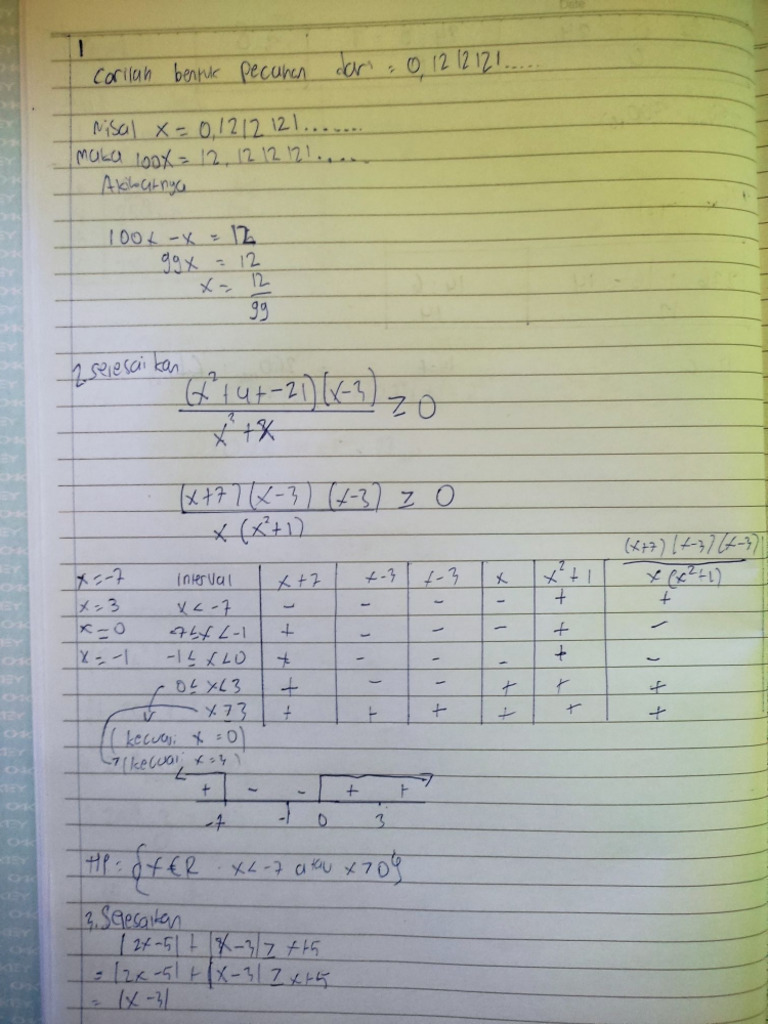 1
Carilah bentuk pecahan dari = 0,1212121.....
Misal x = 0,1212121........
maka 100x = 12,1212121......
Akibatnya
100x - x = 12
99x = 12
x = 12/99
2. selesaikan
(x²+4+-21)(x-3) / x³+x ≥ 0
(x+7)(x-3)(x-3) / x(x²+1) ≥ 0
x=-7 interval x+7 x-3 x-3 x x²+1 (x+7)(x-3)(x-3) / x(x²+1)
x=3 x<-7 - - - - + +
x=0 -7≤x<-1 + - - - + -
x=-1 -1≤x<0 + - - - + -
0≤x<3 + - - + + +
x≥3 + + + + + +
(kecuali x=0)
(kecuali x=3)
+ - - + +
-7 -1 0 3
HP = {x∈R . x<-7 atau x>0}
3. Selesaikan
|2x-5| + |x-3| ≥ x+5
= |2x-5| + |x-3| ≥ x+5
= |x-3|